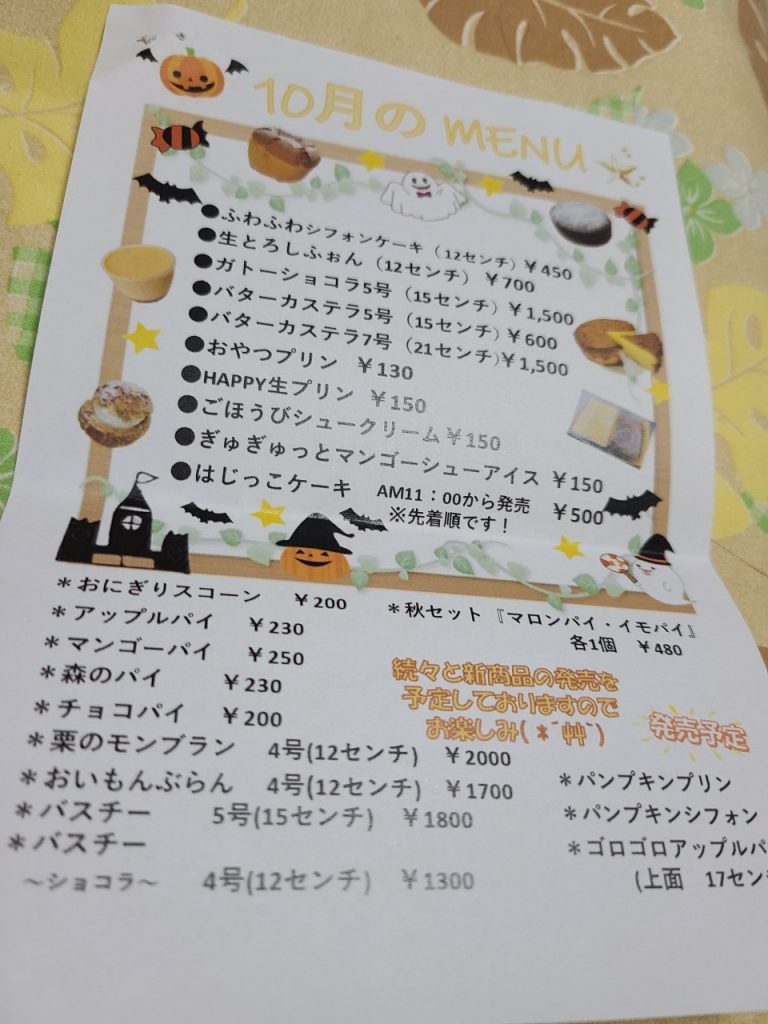 10月のMENU
●ふわふわシフォンケーキ（12センチ）￥450
●生とろしふぉん（12センチ）￥700
●ガトーショコラ5号（15センチ）￥1,500
●バターカステラ5号（15センチ）￥600
●バターカステラ7号（21センチ）￥1,500
●おやつプリン ￥130
●HAPPY生プリン ￥150
●ごほうびシュークリーム￥150
●ぎゅぎゅっとマンゴーシューアイス ￥150
●はじっこケーキ AM11：00から発売 ￥500
※先着順です！
＊おにぎりスコーン ￥200
＊アップルパイ ￥230
＊マンゴーパイ ￥250
＊森のパイ ￥230
＊チョコパイ ￥200
＊栗のモンブラン 4号(12センチ) ￥2000
＊おいもんぶらん 4号(12センチ) ￥1700
＊バスチー 5号(15センチ) ￥1800
＊バスチー
～ショコラ～ 4号(12センチ) ￥1300
＊秋セット『マロンパイ・イモパイ』
各1個 ￥480
続々と新商品の発売を
予定しておりますので
お楽しみ(＊´艸`)
発売予定
＊パンプキンプリン
＊パンプキンシフォン
＊ゴロゴロアップルパ
(上面 17セン